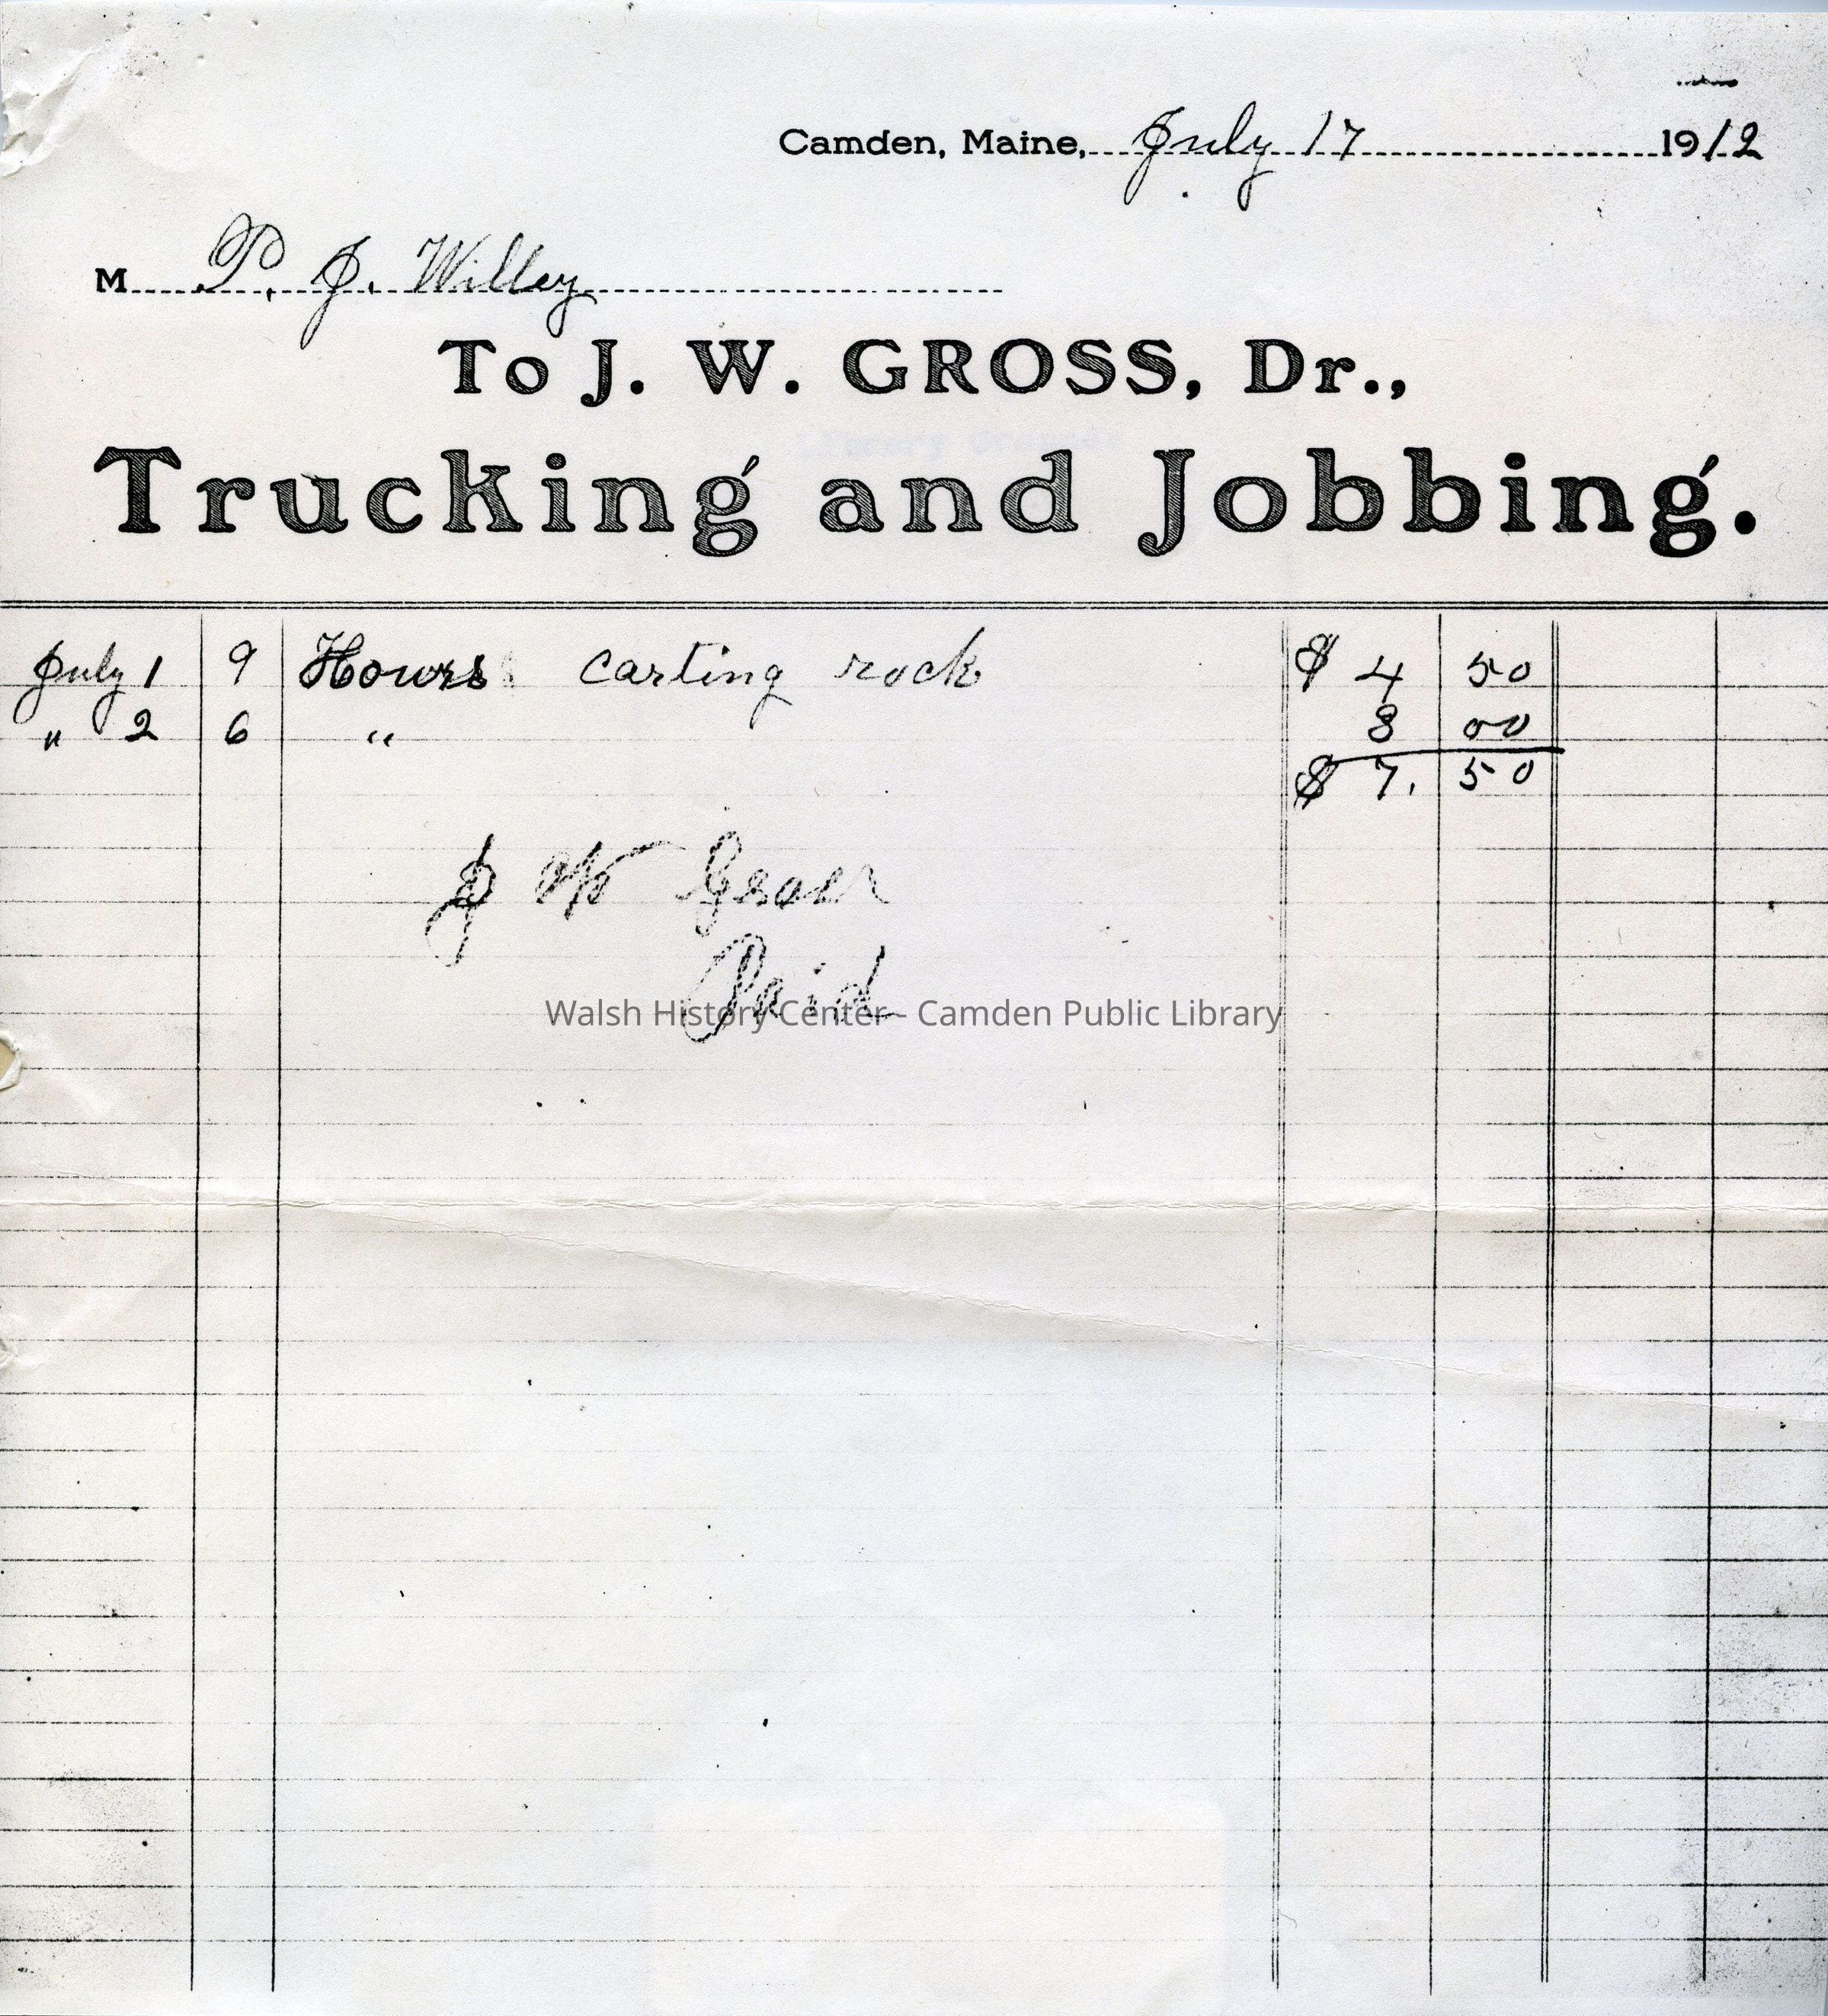 Camden, Maine, July 17 1912
M P. J. Willey
To J. W. GROSS, Dr.,
Trucking and Jobbing.
July 1 9 Hours carting rock $ 4 50
" 2 6 " 3 00
$ 7. 50
J W Gross
Paid
Walsh History Center - Camden Public Library